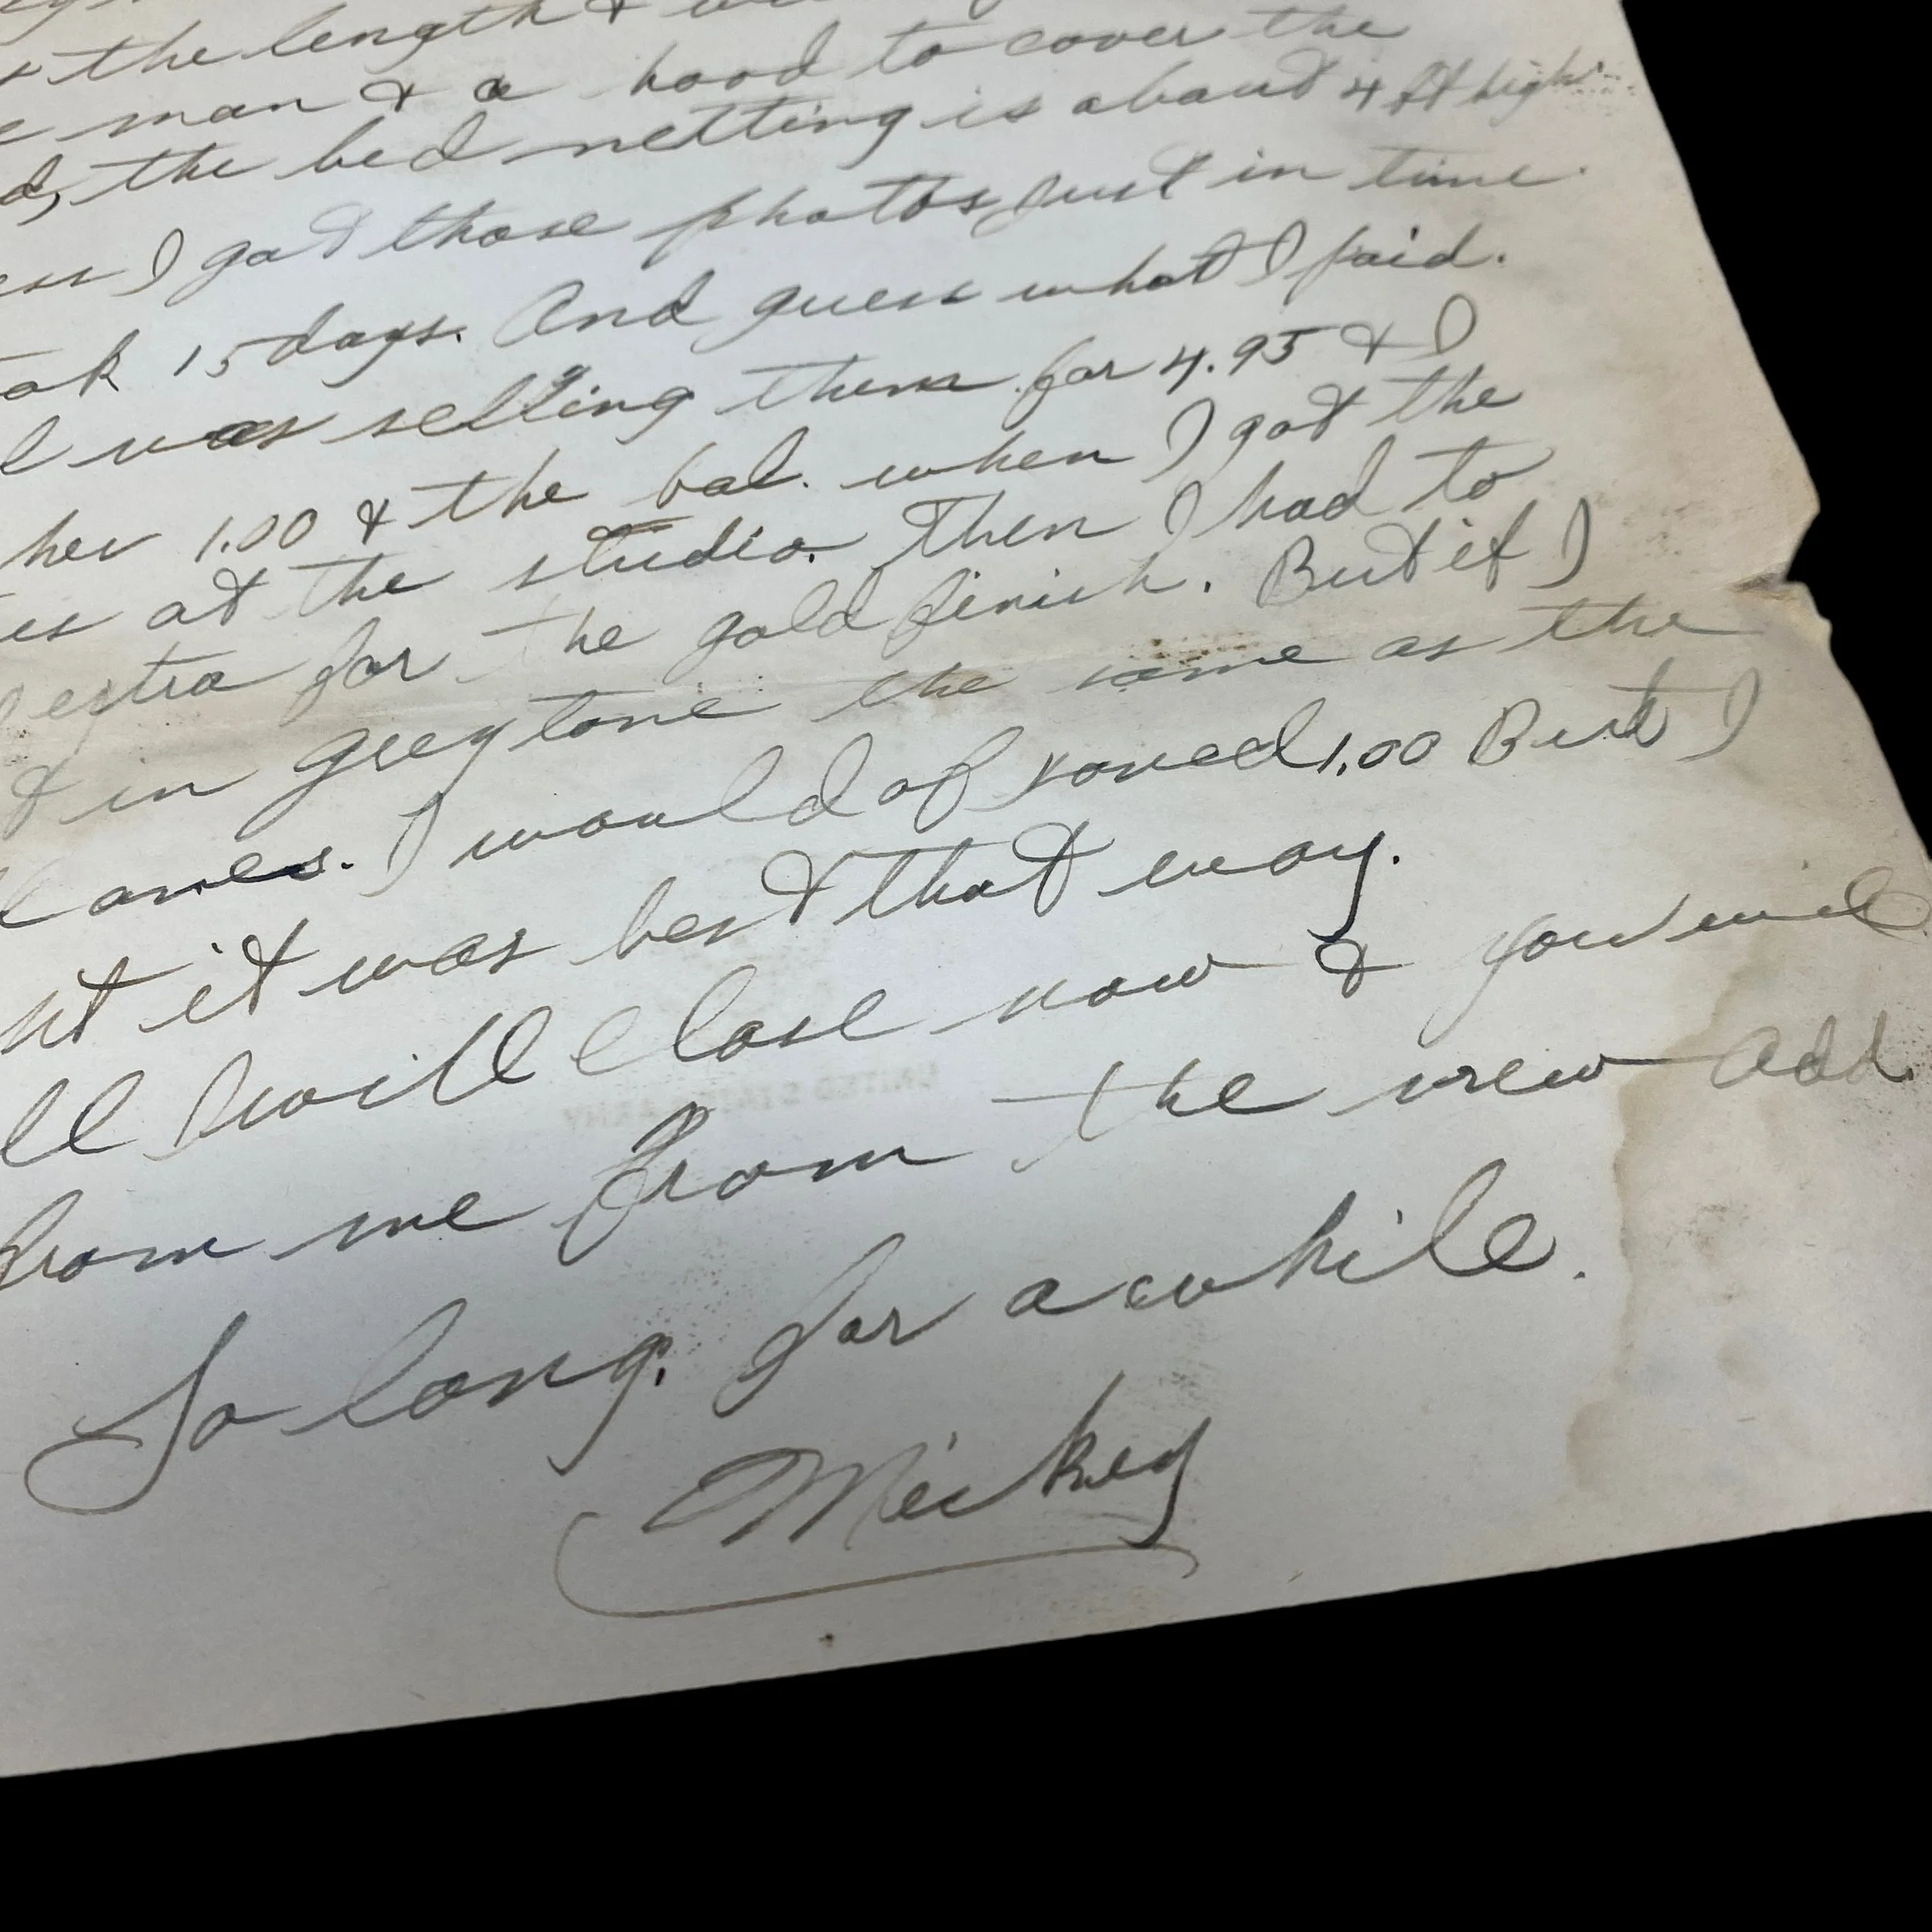 the length &
man & a hood to cover the
the bed netting is about 4 ft high.
I got those photos just in time.
15 days. And guess what I paid.
was selling them for 4.95 & I
her 1.00 & the bal. when I got the
at the studio. Then I had to
extra for the gold finish. But if I
in greytone the same as the
ones. I would of saved 1.00 But I
it was best that way.
I will close now & you will
from me from the new add.
So long. for a while.
Mickey
UNITED STATES ARMY